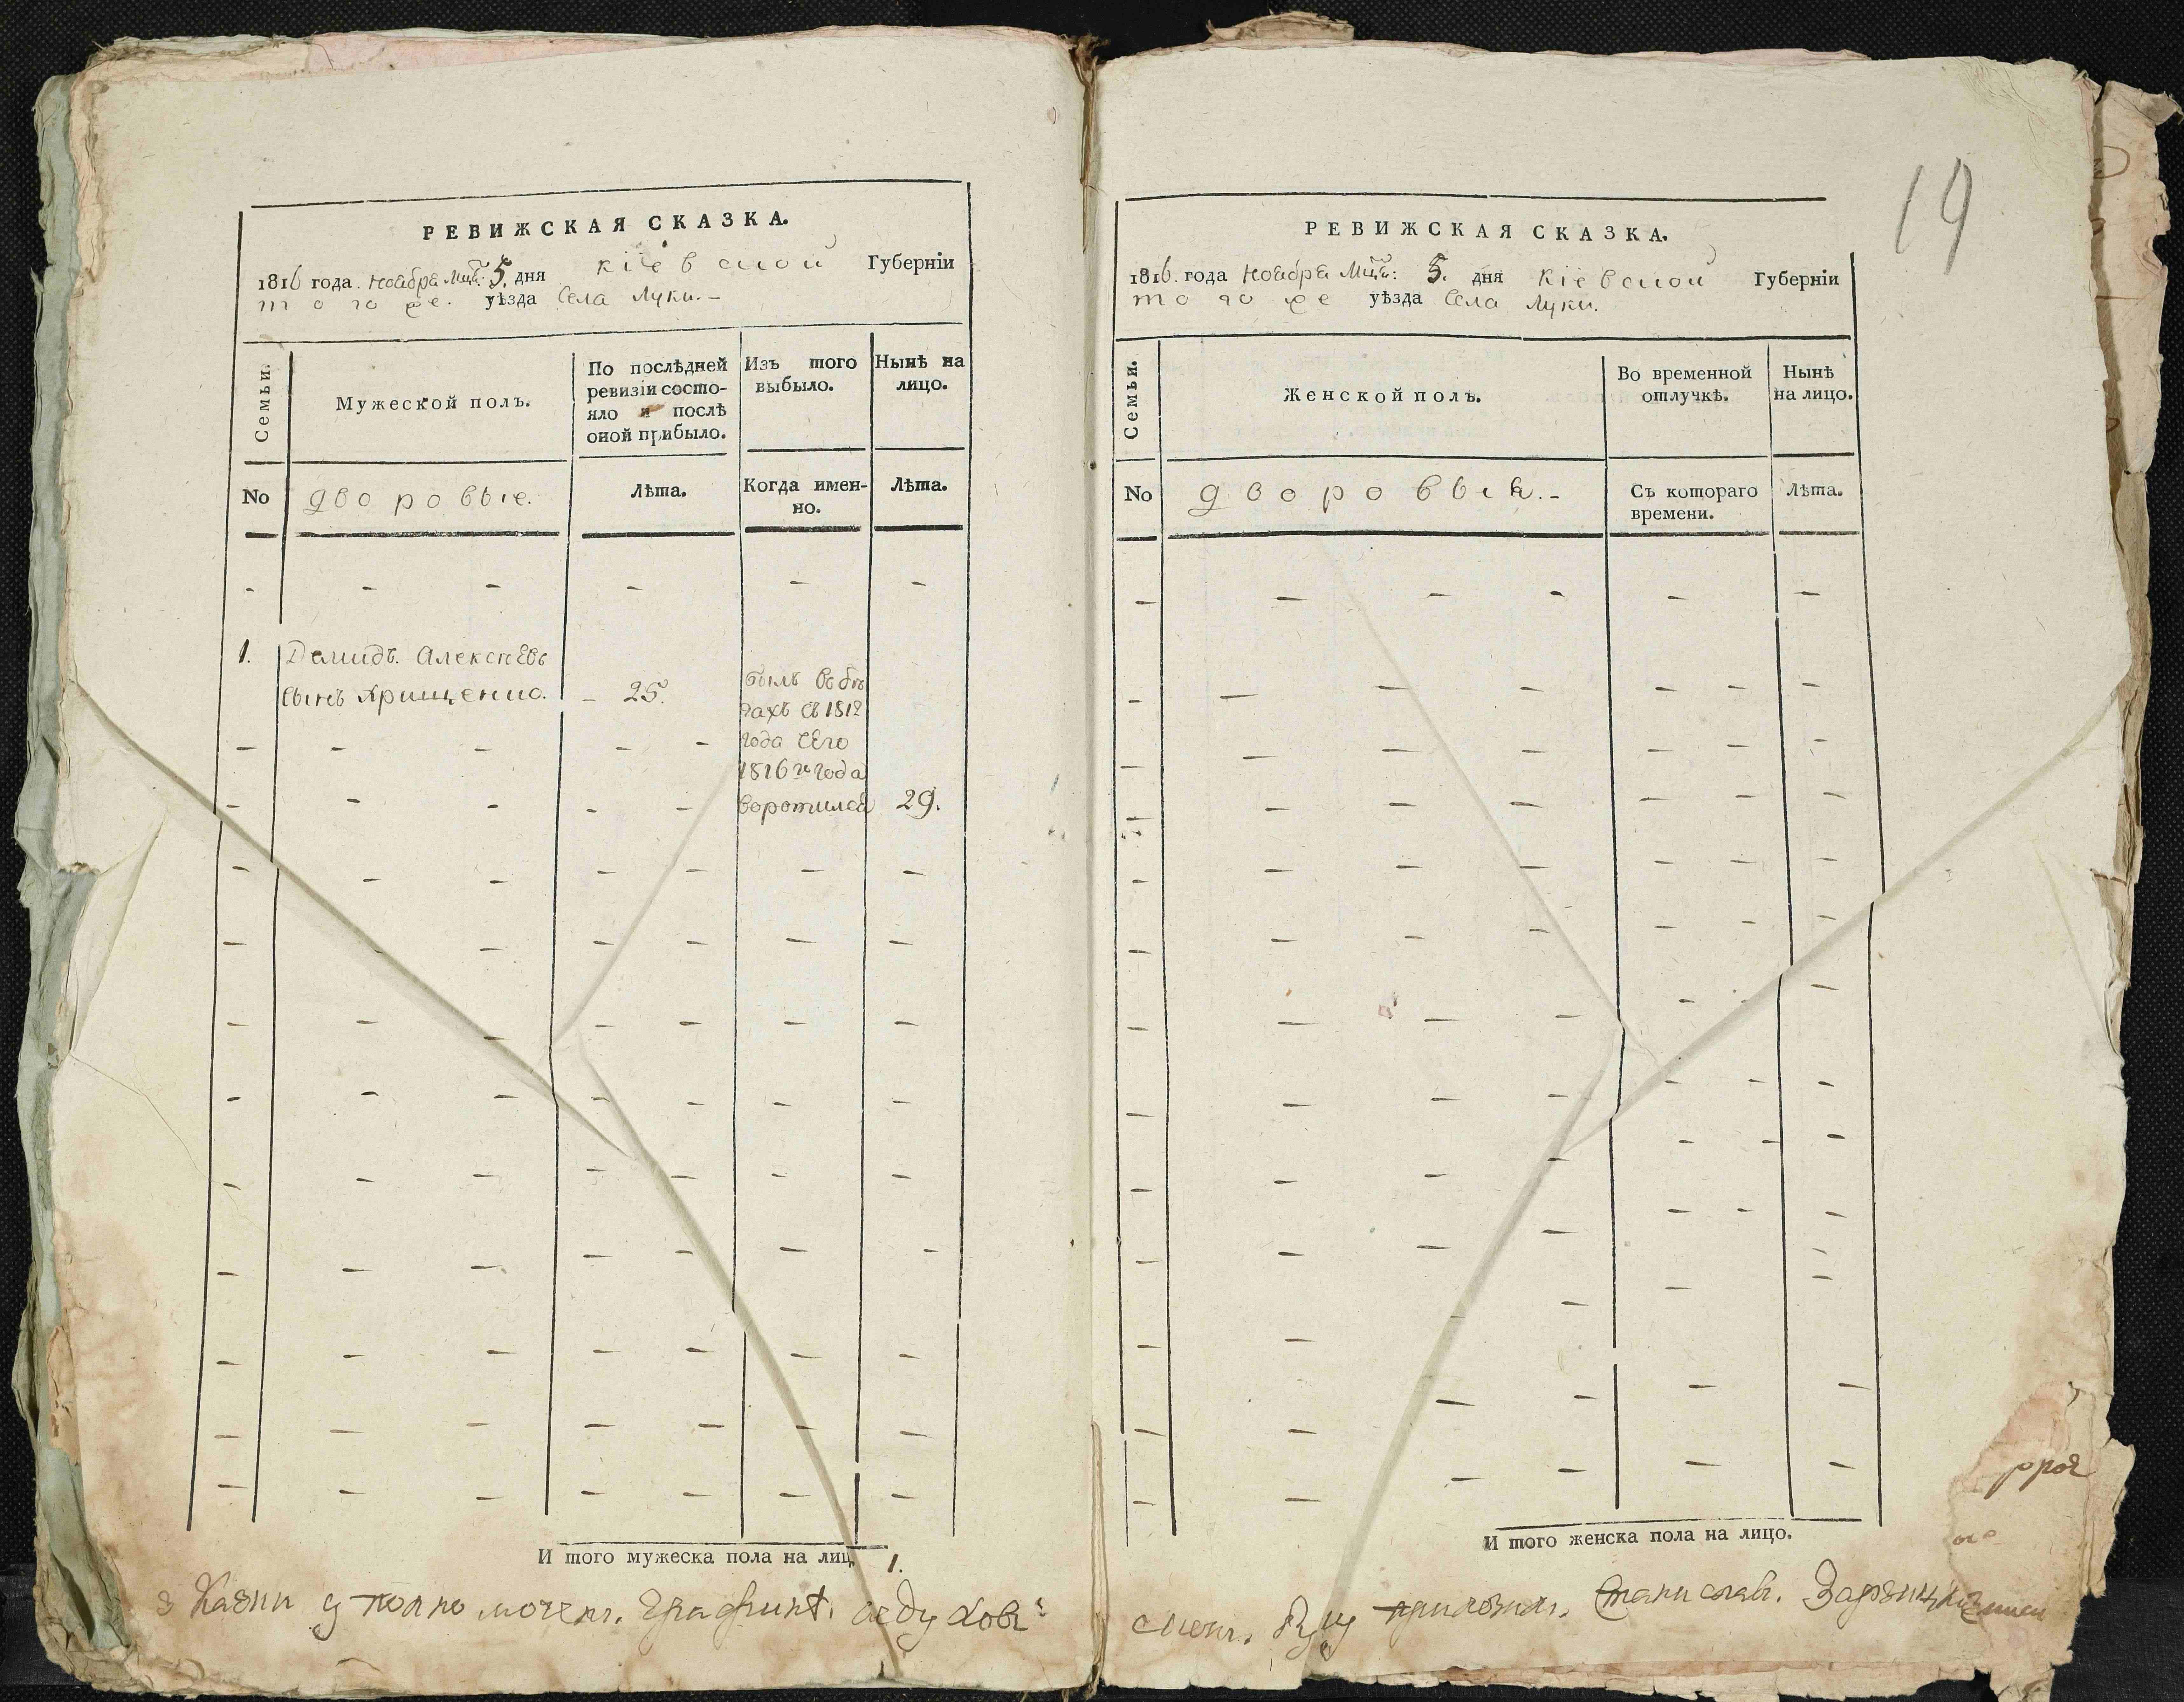 РЕВИЖСКАЯ СКАЗКА.
1816 года Ноабра Мцъ: 5. дня кіевской Губерніи
того же. уѣзда Села Луки.-
Семьи.
Мужеской полъ.
По послѣдней ревизіи состо-
яло и послѣ
оной прибыло.
Изъ того
выбыло.
Нынѣ на
лицо.
No
дворовые.
Лѣта.
Когда имен-
но.
Лѣта.
1. Демидъ. Алексѣевъ
сынъ Хрищенко. - 25.
былъ вобѣ
гахъ съ 1812
года сего
1816го года
воротился 29.
И того мужеска пола на лиц. 1.
19
РЕВИЖСКАЯ СКАЗКА.
1816. года Ноабра Мцъ: 5. дня кіевской Губерніи
того же уѣзда Села Луки.
Семьи.
Женской полъ.
Во временной
отлучкѣ.
Нынѣ
на лицо.
No
дворовыя.-
Съ котораго
времени.
Лѣта.
И того женска пола на лицо.
руку приложил. Станислав.